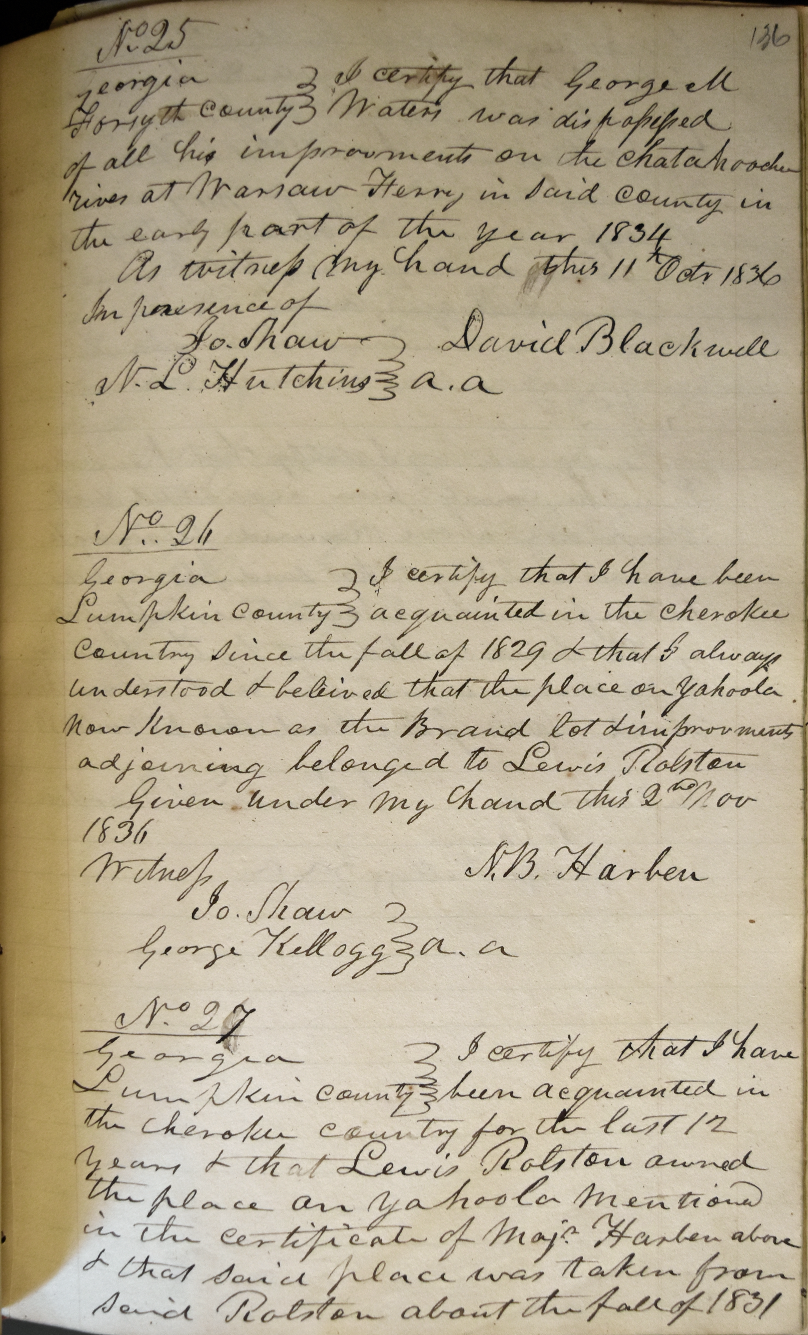 136
No 25
Georgia } I certify that George M
Forsyth County } Waters was dispossessed
of all his improvments on the Chatahooche
river at Warsaw Ferry in said county in
the early part of the year 1834
As witness my hand this 11th Octr 1836
In presence of
Jo. Shaw } David Blackwell
N. L. Hutchins } a. a
No. 26
Georgia } I certify that I have been
Lumpkin county } acquainted in the cherokee
country since the fall of 1829 & that I always
understood & beleived that the place on Yahoola
now known as the Brand lot & improvments
adjoining belonged to Lewis Rolston
Given under my hand this 2nd Nov
1836
Witness N. B. Harben
Jo. Shaw }
George Kellogg } a. a
No. 27
Georgia } I certify that I have
Lumpkin county } been acquainted in
the cherokee country for the last 12
years & that Lewis Rolston owned
the place on Yahoola mentiond
in the certificate of Majr. Harben above
& that said place was taken from
said Rolston about the fall of 1831